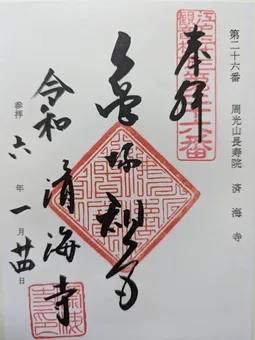 第二十六番 周光山長寿院 済海寺
奉拝
亀塚観音
済海寺
令和六年一月廿四日
参拝